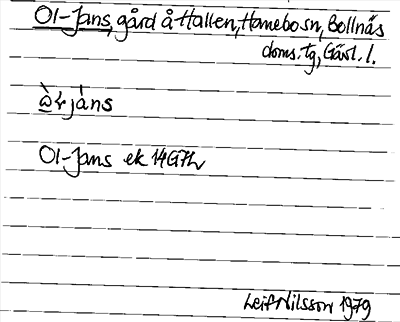 Ol-Jans, gård å Hallen, Hanebo sn, Bollnäs
doms. tg, Gävl. l.
Ol-Jans ek 14G7h
Leif Nilsson 1979